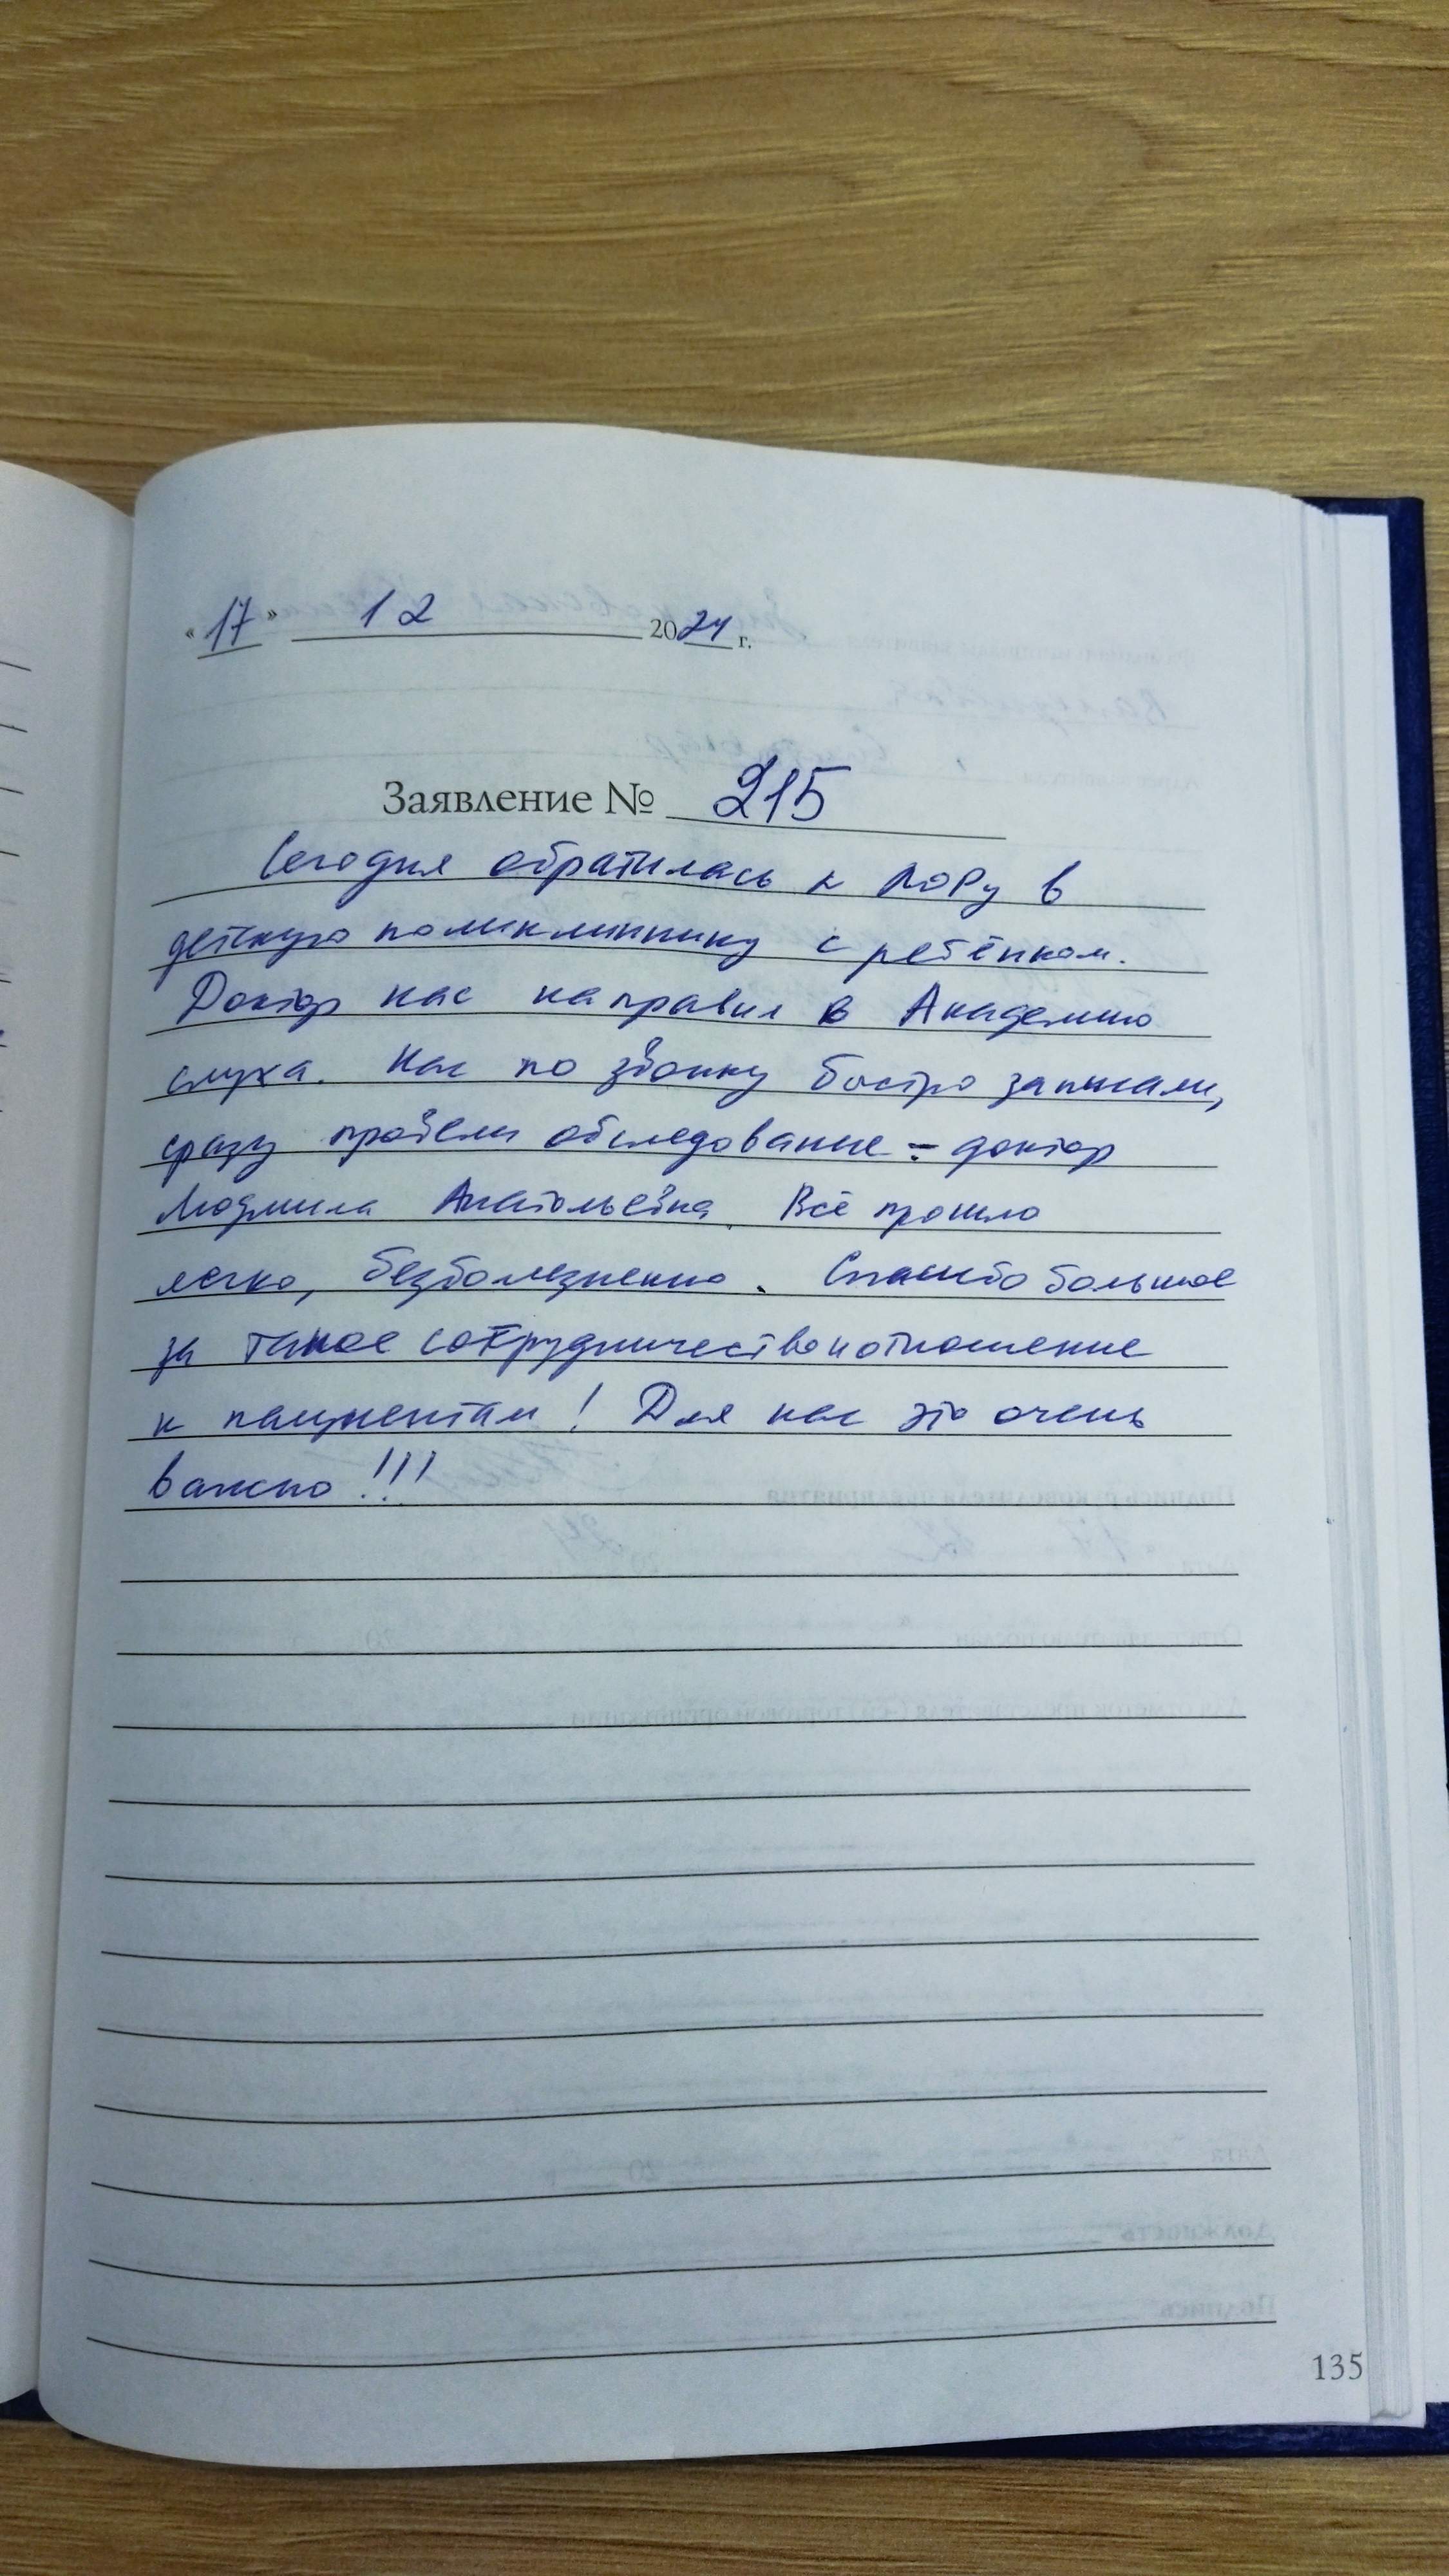 «17» 12 2024 г.
Заявление № 215
Сегодня обратилась к ЛОРу в
детскую поликлиннику с ребёнком.
Доктор нас направил в Академию
слуха. Нас по звонку быстро записали,
сразу провели обследование - доктор
Людмила Анатольевна. Всё прошло
легко, безболезненно. Спасибо большое
за такое сотрудничество и отношение
к пациентам! Для нас это очень
важно!!!
135